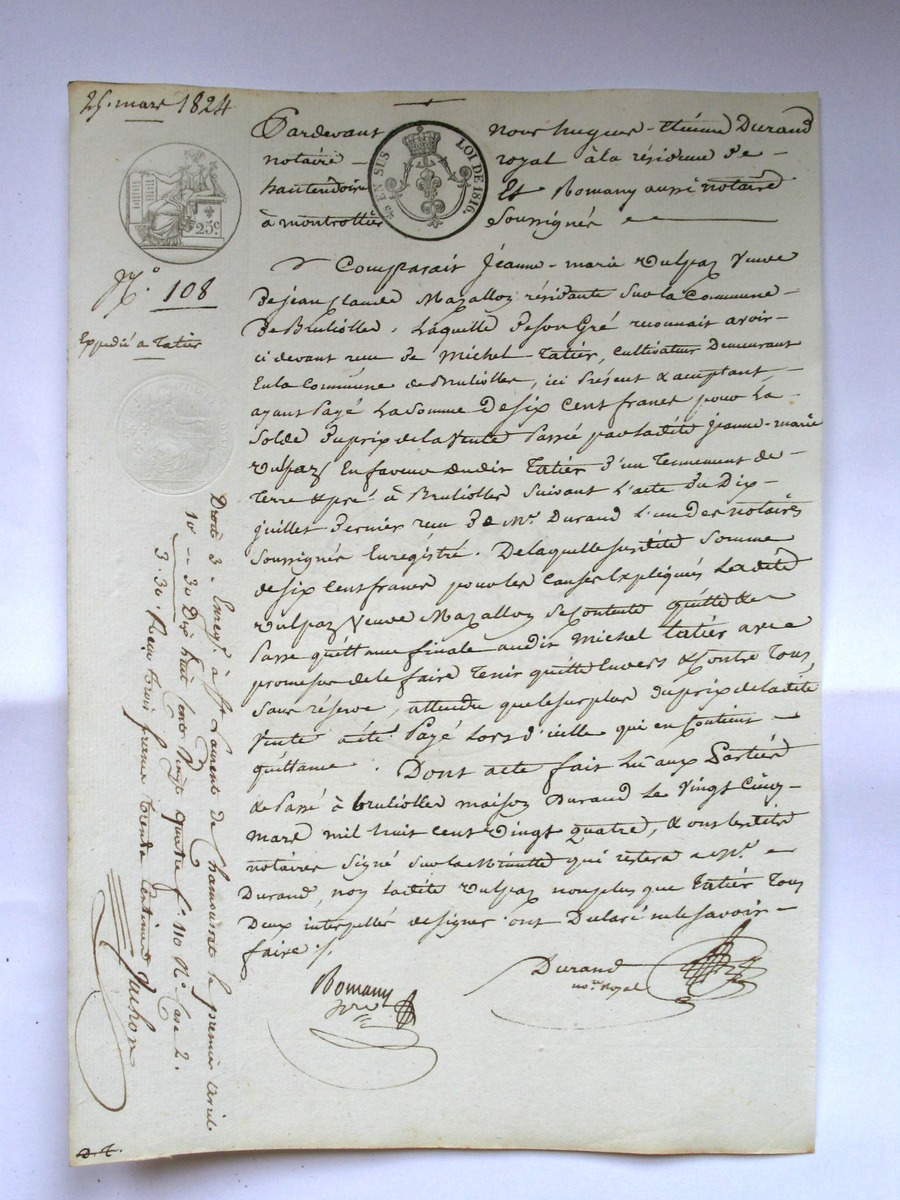 25. mars 1824
Pardevant nous hugues-Etienne Durand
notaire - royal à la résidence de -
hauterivoire Et Romany aussi notaire
à montrottier Soussignés
EN SUS LOI DE 1816.
25c
N.° 108
Expedié a Tatier
Comparait Jeanne-marie Vulpaz Veuve
de jean Claude Mazalloz résidante Sur la Commune -
de Brulliolles. Laquelle de son Gré reconnait avoir -
ci devant reçu de Michel Tatier, Cultivateur Demeurant
En la Commune de Brulliolles, ici Présent & acceptant, -
ayant Payé La Somme De six Cent francs pour La -
Solde Du prix de la Vente Passée par ladite Jeanne-marie
Vulpaz En faveur dudit Tatier d'un Tennement de -
Terre & pré à Brulliolles Suivant L'acte du Dix -
juillet dernier reçu De Me. Durand L'un des notaires
Soussignés Enregistré. De laquelle susdite Somme
de six Cent francs pour les Causes Expliquées Ladite
Vulpaz Veuve Mazalloz se Contente quitte &
Passe quittance finale audit Michel Tatier avec
promesse de le faire Tenir quitte Envers & Contre Tous
Sans réserve, attendu que le surplus du prix de ladite
Vente a été Payé Lors d'icelle qui en Contient
quittance. Dont acte fait Lu aux Parties
& Passé à brulliolles maison Durand Le Vingt Cinq
mars mil huit cent Vingt quatre, & ont lesdits
notaires Signé Sur la Minutte qui restera a Me.
Durand, non Ladite Vulpaz non plus que Tatier Tous
Deux interpellés de signer ont Déclaré ne le Savoir -
faire ./.
Romany
Durand
no.re Royal
Droits 3. Enreg.é à St Laurent de Chamousset le premier avril
10e -- 30 Dix huit Cent Vingt quatre f.° 110 R.° Case 2.
3.30. Reçu trois francs trente Centimes